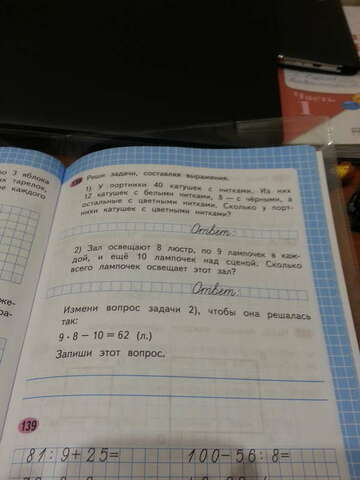 Часть
1
о 3 яблока
тарелок,
каждого
Реши задачи, составляя выражения.
1) У портнихи 40 катушек с нитками. Из них
12 катушек с белыми нитками, 8 — с чёрными, а
остальные с цветными нитками. Сколько у порт-
нихи катушек с цветными нитками?
Ответ:
2) Зал освещают 8 люстр, по 9 лампочек в каж-
дой, и ещё 10 лампочек над сценой. Сколько
всего лампочек освещает этот зал?
Ответ:
Измени вопрос задачи 2), чтобы она решалась
так:
9 · 8 − 10 = 62 (л.)
Запиши этот вопрос.
139
81:9+25=
100-56:8=